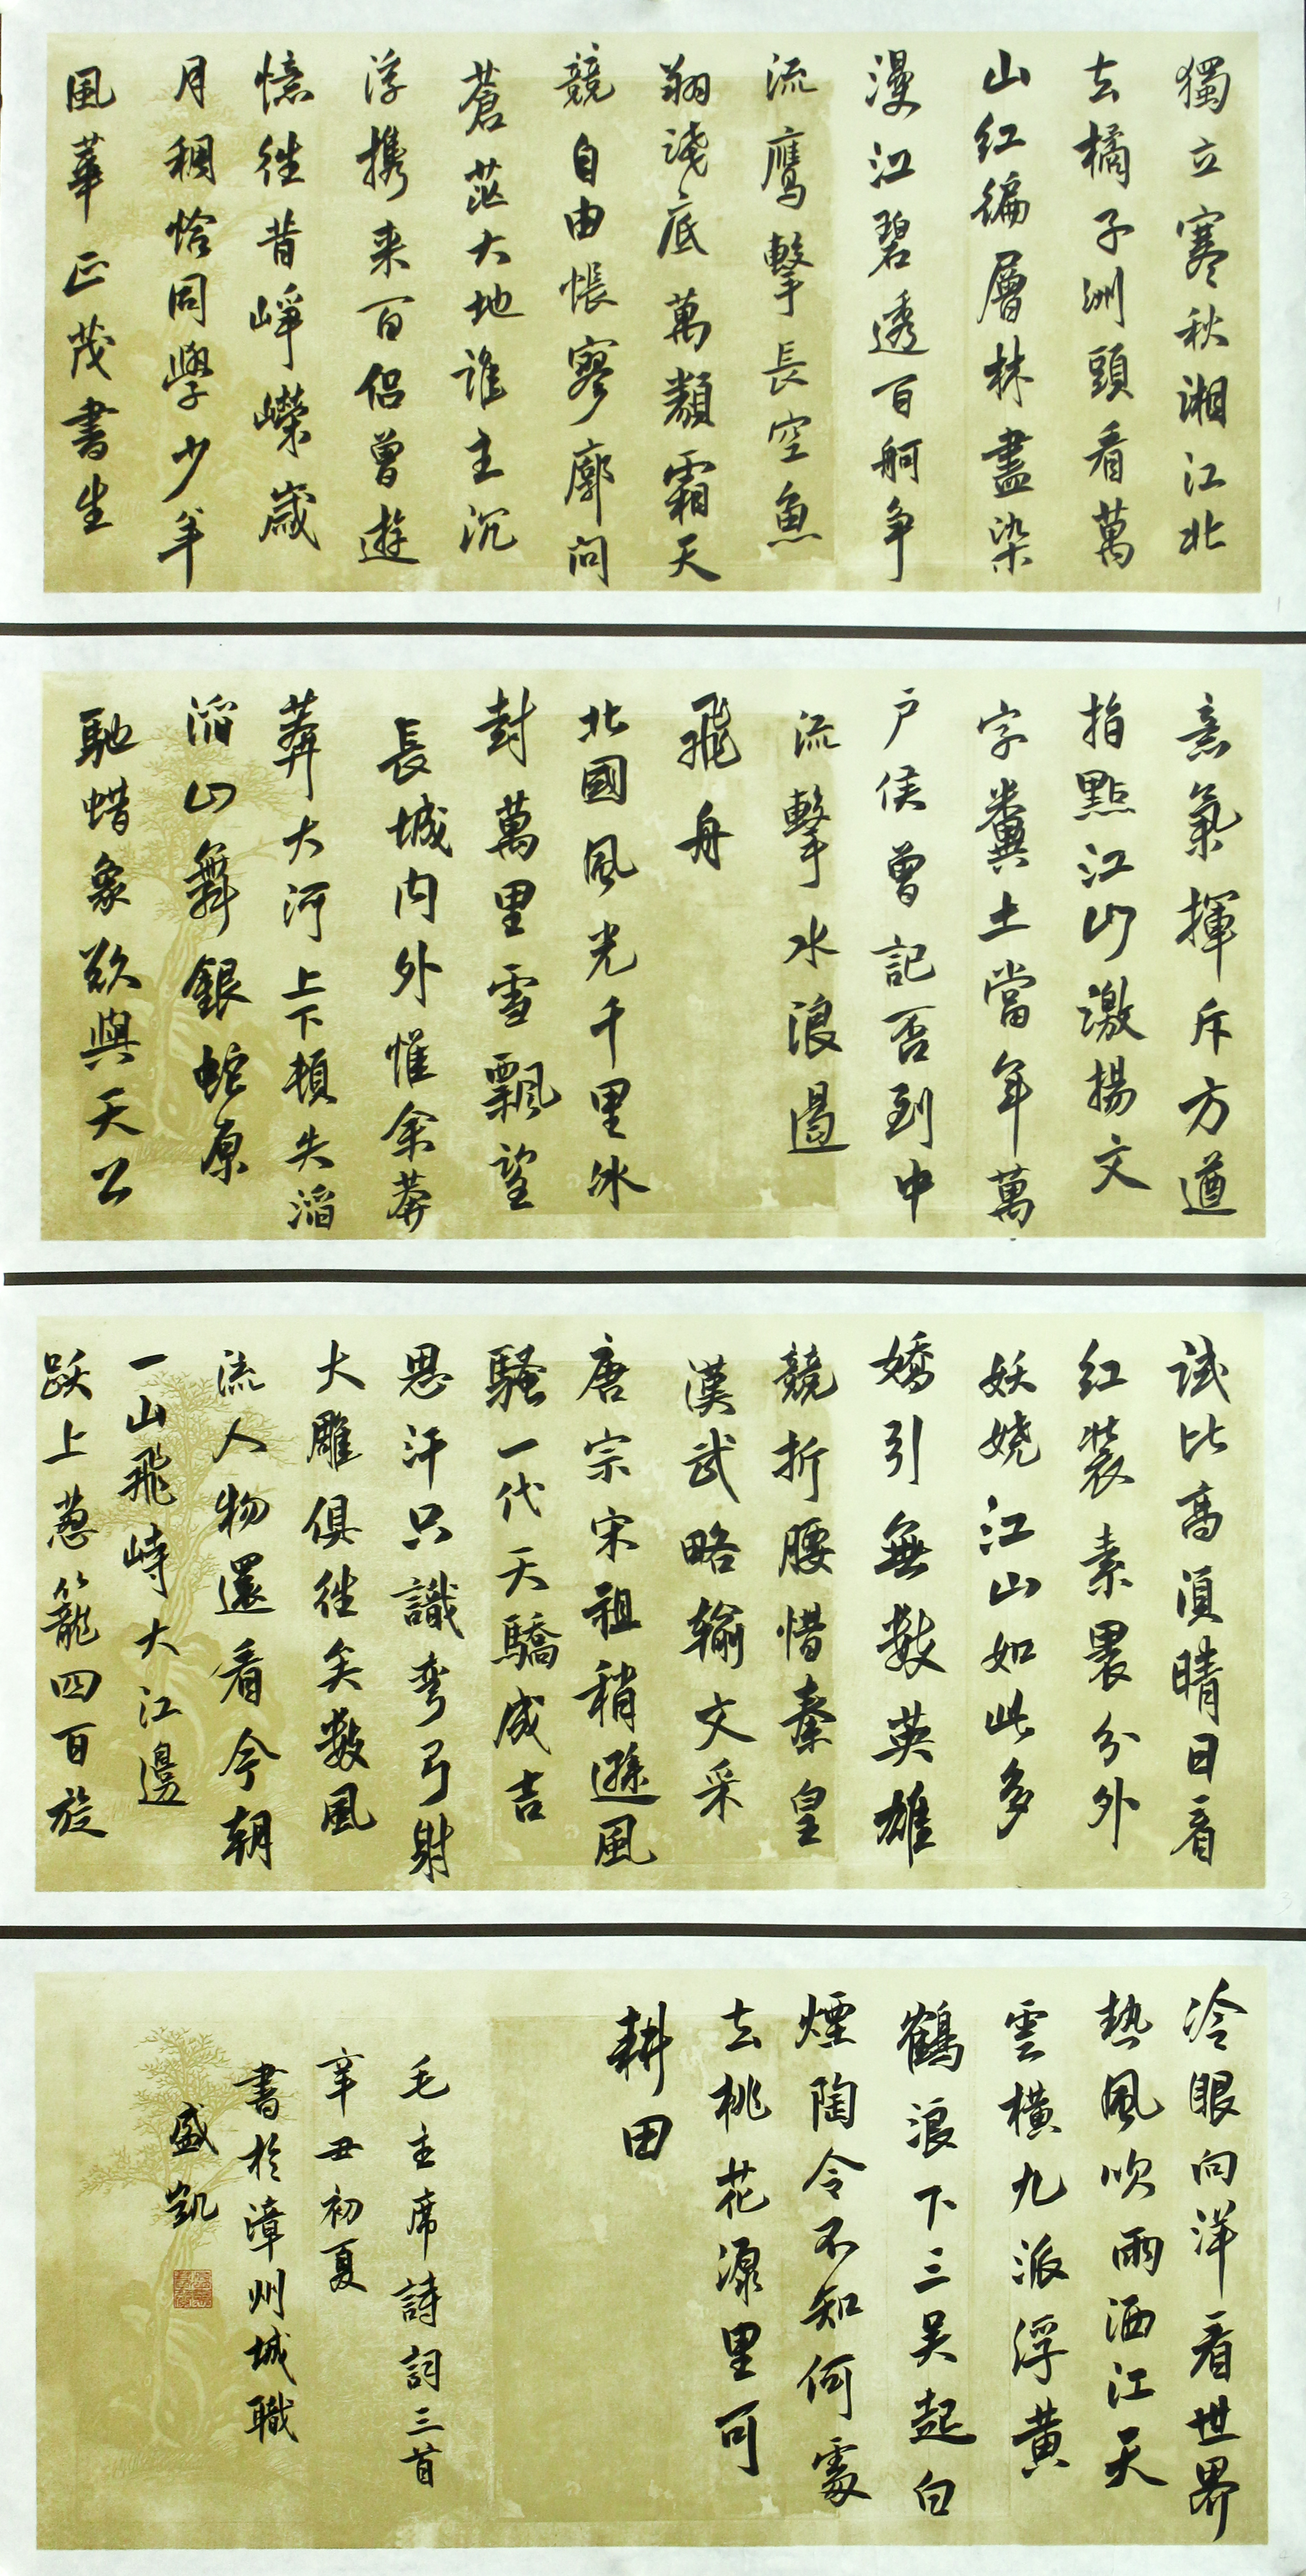 獨立寒秋湘江北
去橘子洲頭看萬
山紅徧層林盡染
漫江碧透百舸争
流鷹擊長空魚
翔淺底萬類霜天
競自由悵寥廓問
蒼茫大地誰主沉
浮攜来百侶曾遊
憶往昔崢嶸歲
月稠恰同學少年
風華正茂書生
意氣揮斥方遒
指點江山激揚文
字糞土當年萬
户侯曾記否到中
流擊水浪遏
飛舟
北國風光千里冰
封萬里雪飄望
長城内外惟余莽
莽大河上下頓失滔
滔山舞銀蛇原
馳蜡象欲與天公
試比高須晴日看
紅裝素裹分外
妖嬈江山如此多
嬌引無數英雄
競折腰惜秦皇
漢武略輸文采
唐宗宋祖稍遜風
騷一代天驕成吉
思汗只識彎弓射
大雕俱往矣數風
流人物還看今朝
一山飛峙大江邊
跃上葱籠四百旋
冷眼向洋看世界
熱風吹雨洒江天
雲橫九派浮黄
鶴浪下三吴起白
煙陶令不知何處
去桃花源里可
耕田
毛主席詩詞三首
辛丑初夏
書於漳州城職
盛凱